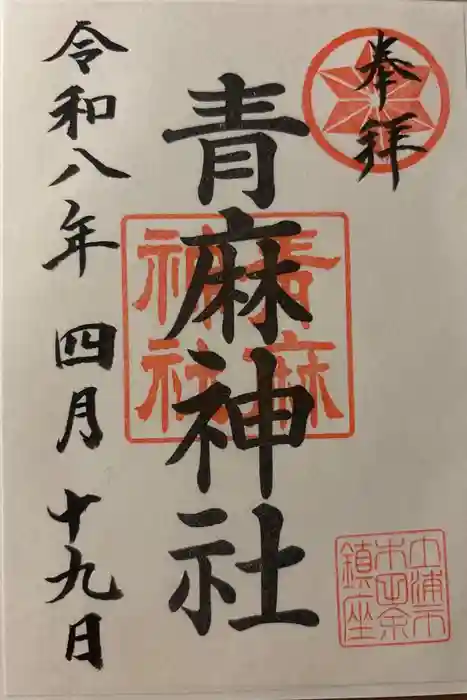 奉拝
青麻神社
令和八年 四月 十九日
青麻
神社
土浦市
木田余
鎮座